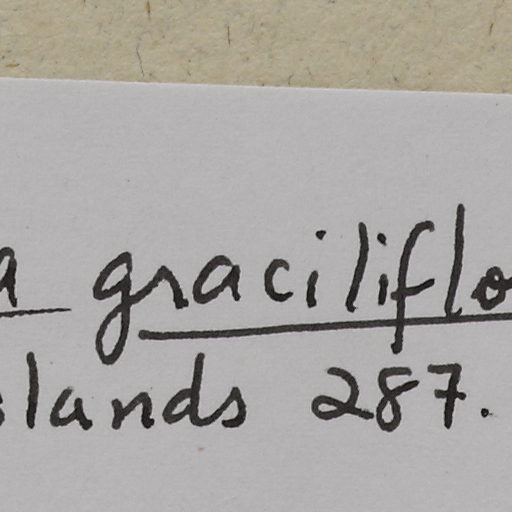 a graciliflo
slands 287.